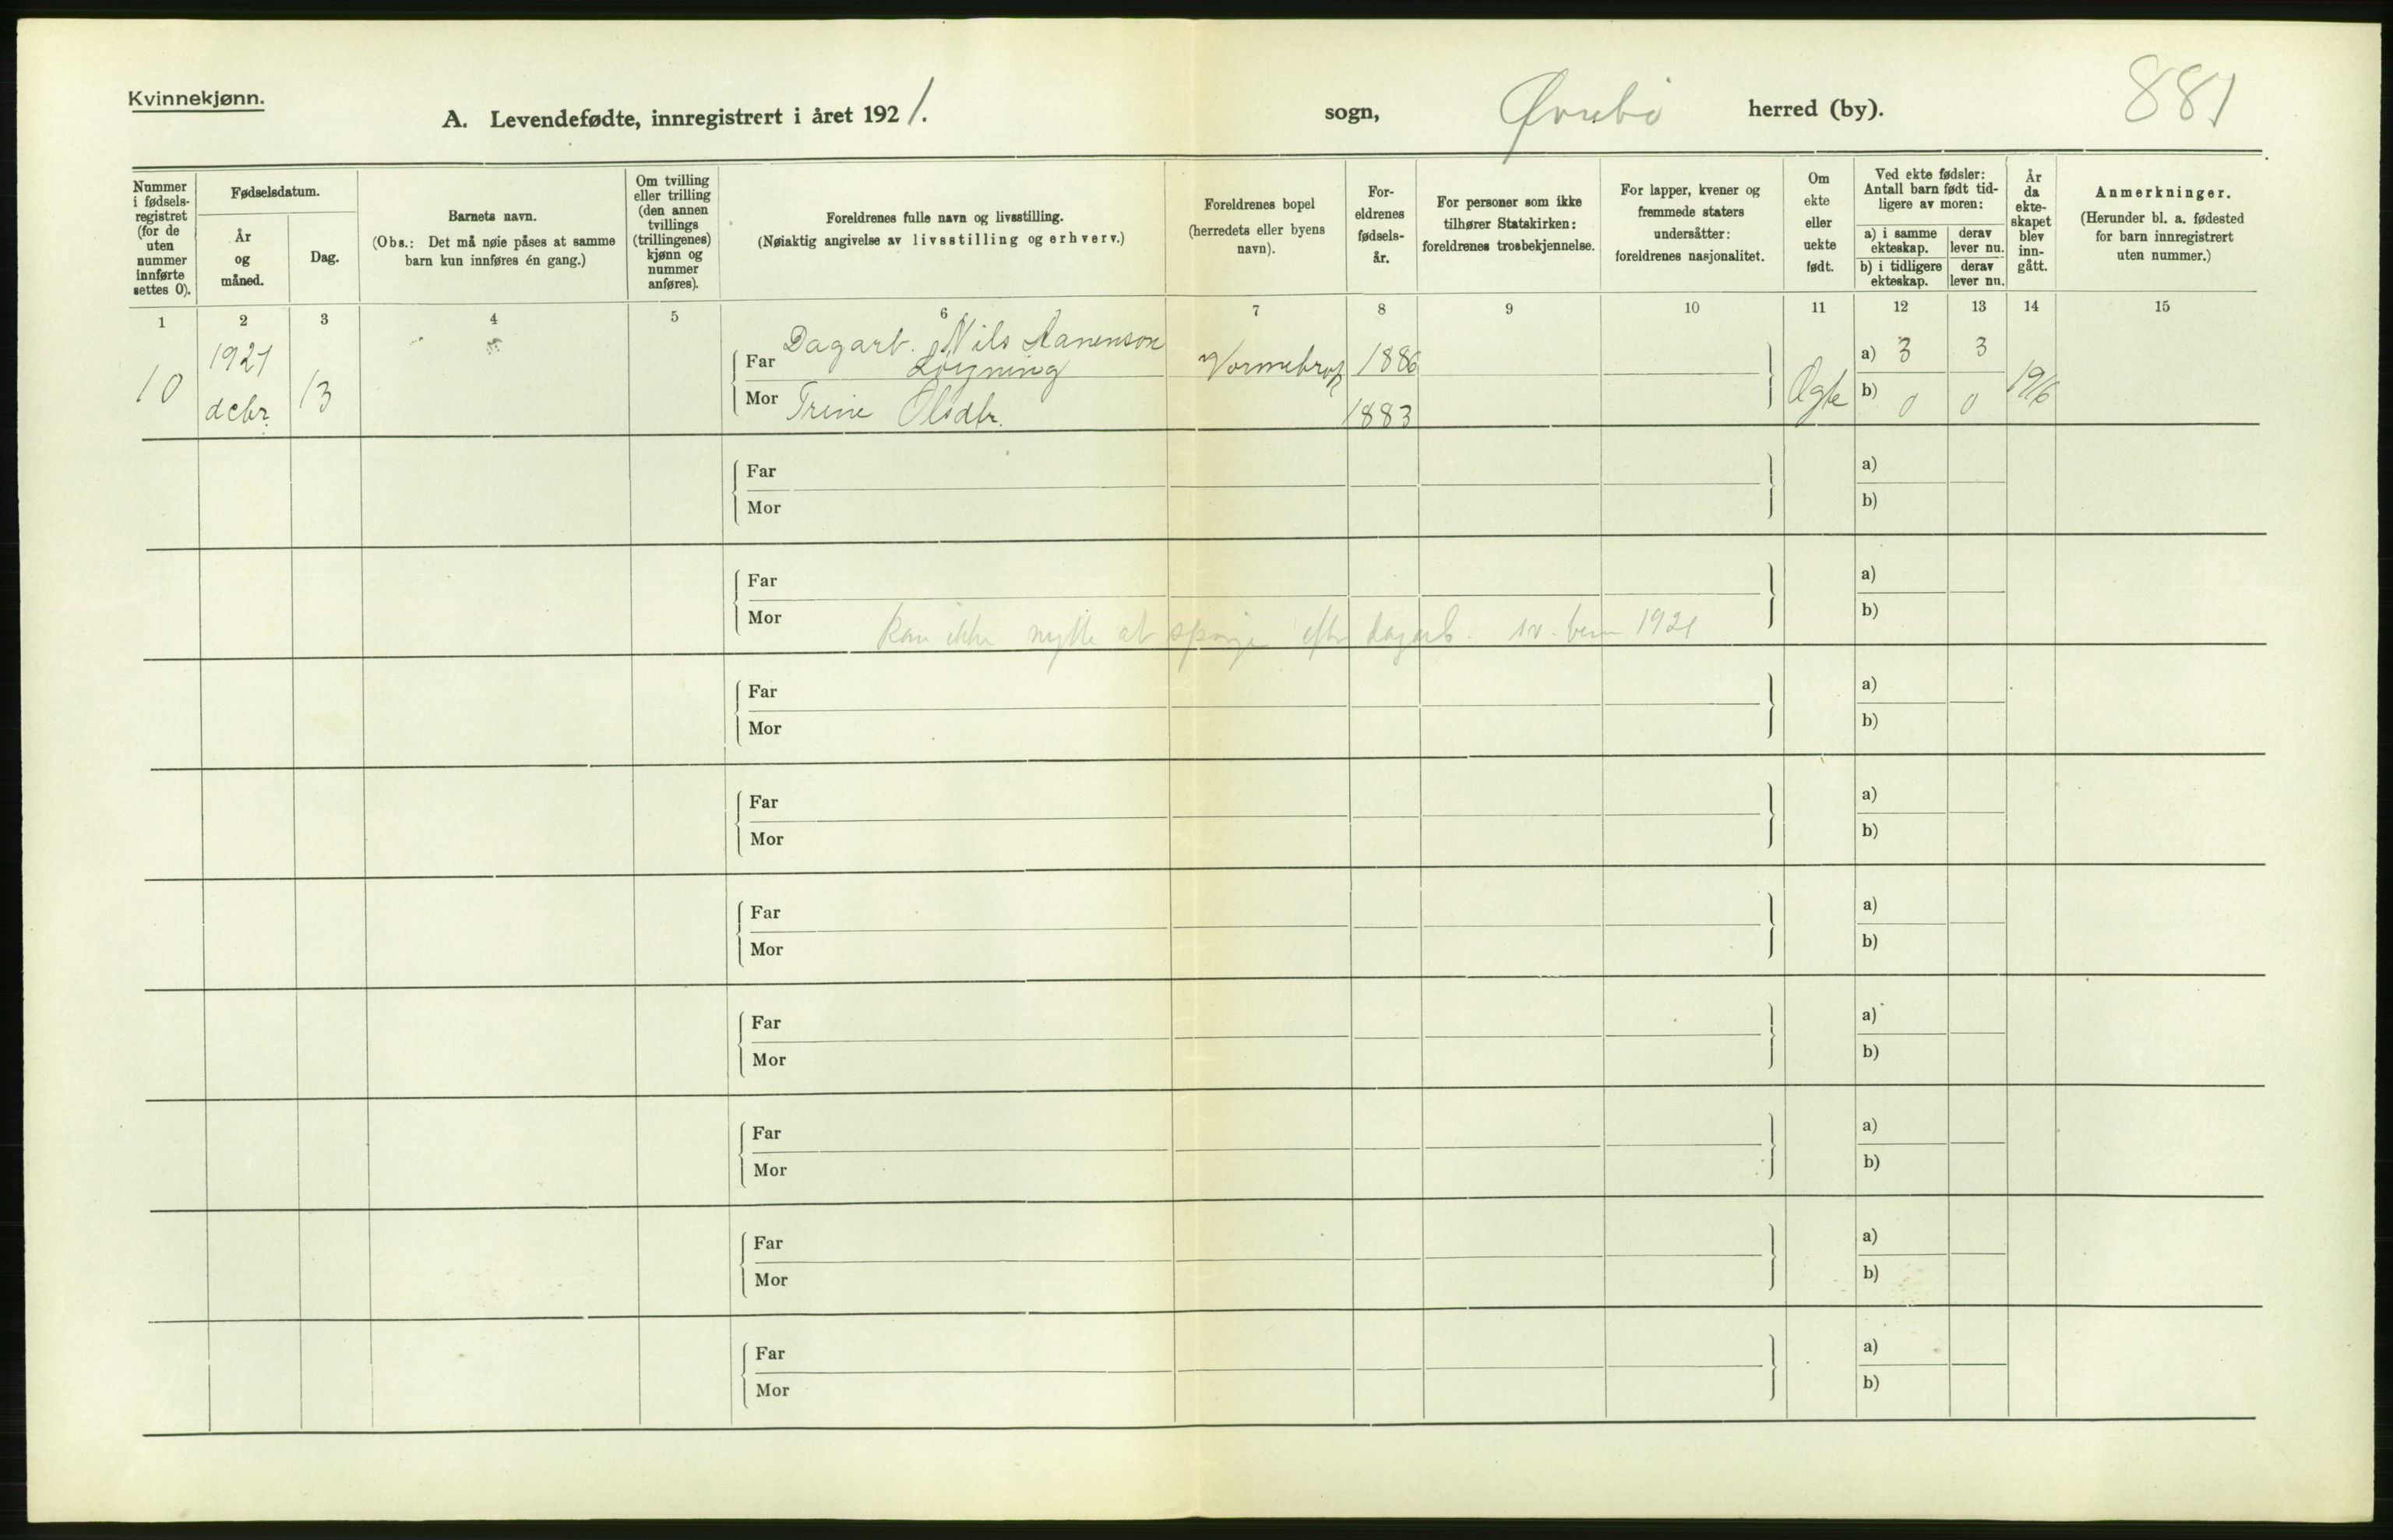 Kvinnekjønn.
A. Levendefødte, innregistrert i året 1921.
sogn, Øvrebø herred (by).
887
Nummer i fødsels-registret (for de uten nummer innførte settes 0).
Fødselsdatum.
År og måned.
Dag.
Barnets navn.
(Obs.: Det må nøie påses at samme barn kun innføres én gang.)
Om tvilling eller trilling (den annen tvillings (trillingenes) kjønn og nummer anføres).
Foreldrenes fulle navn og livsstilling.
(Nøiaktig angivelse av livsstilling og erhverv.)
Foreldrenes bopel
(herredets eller byens navn).
For-eldrenes fødsels-år.
For personer som ikke tilhører Statskirken: foreldrenes trosbekjennelse.
For lapper, kvener og fremmede staters undersåtter: foreldrenes nasjonalitet.
Om ekte eller uekte født.
Ved ekte fødsler: Antall barn født tid-ligere av moren:
a) i samme ekteskap.
derav lever nu.
b) i tidligere ekteskap.
derav lever nu.
År da ekte-skapet blev inn-gått.
Anmerkninger.
(Herunder bl. a. fødested for barn innregistrert uten nummer.)
1 2 3 4 5 6 7 8 9 10 11 12 13 14 15
10 1921 decbr. 13
Far Dagarb. Nils Aanenson
Løigning
Mor Trine Olsdtr.
1886
1883
Ægte
a) 3 3
b) 0 0
19/6
Far a)
Mor b)
Far a)
Mor b)
kan ikke nytte at spørge efter dagarb. 1921
Far a)
Mor b)
Far a)
Mor b)
Far a)
Mor b)
Far a)
Mor b)
Far a)
Mor b)
Far a)
Mor b)
Far a)
Mor b)